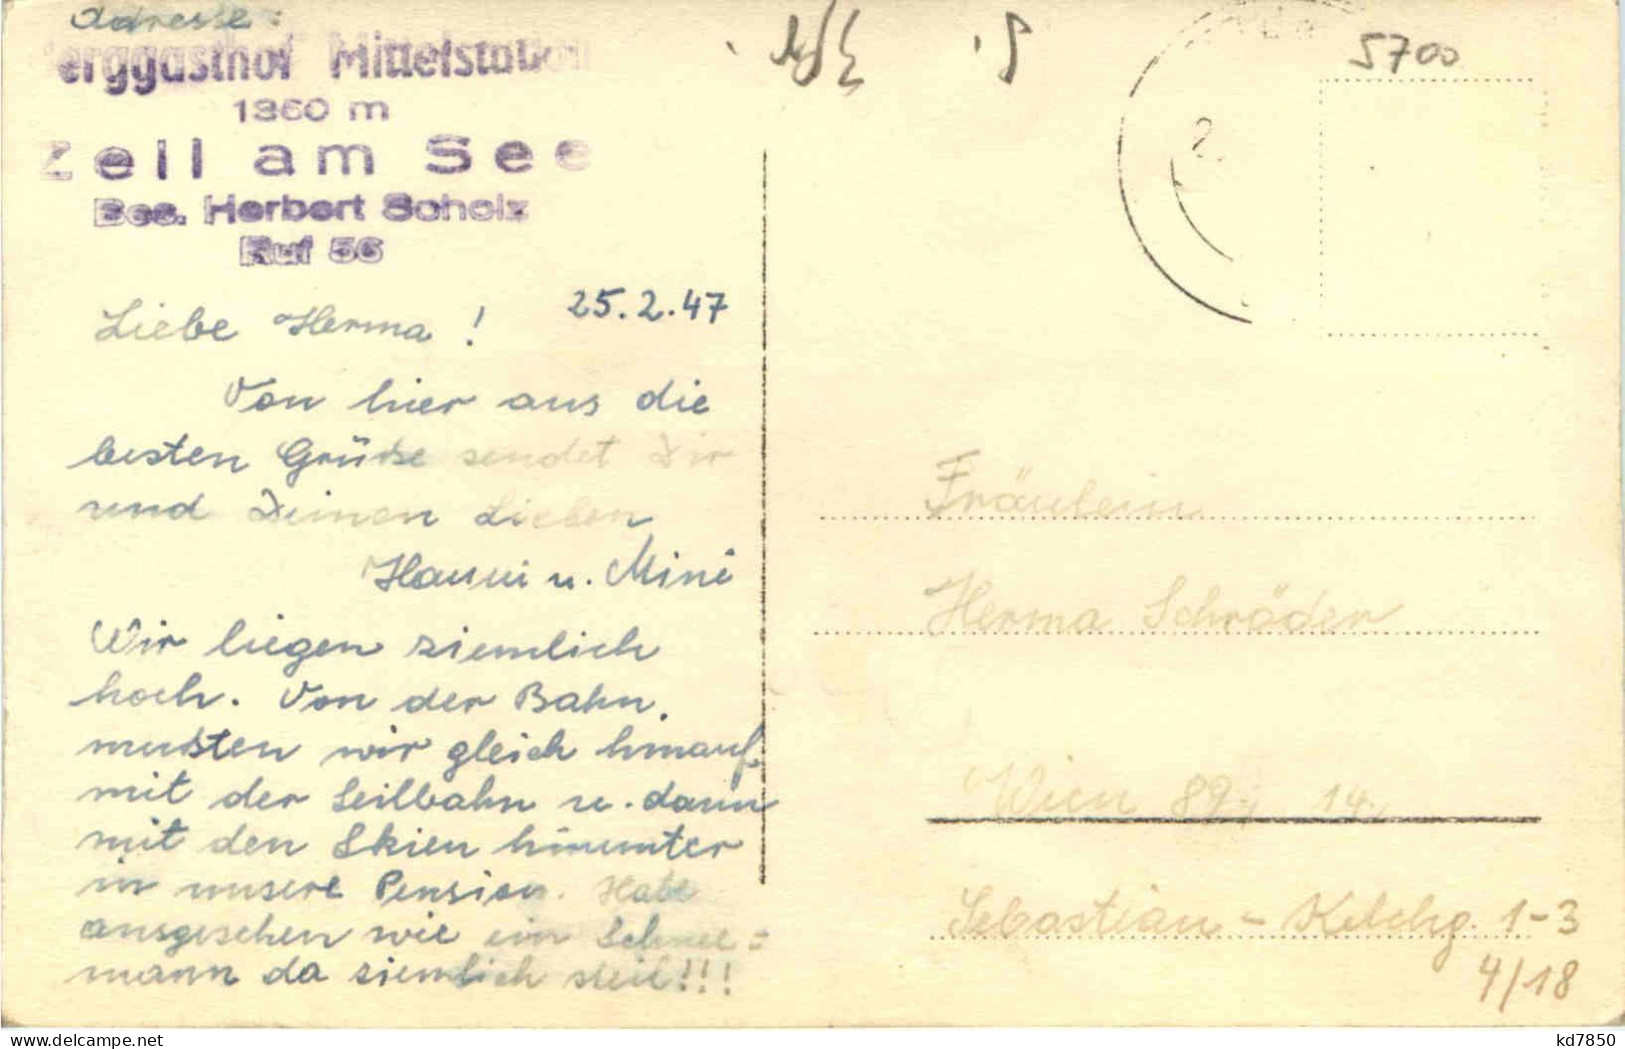 Adresse:
erggasthof Mittelstation
1360 m
Zell am See
Bes. Herbert Scholz
Ruf 56
25.2.47
Liebe Herma!
Von hier aus die
besten Grüße sendet Dir
und Deinen Lieben
Hansi u. Mini
Wir liegen ziemlich
hoch. Von der Bahn
mußten wir gleich hinauf
mit der Seilbahn u. dann
mit den Skien hinunter
in unsere Pension. Habe
ausgesehen wie ein Schnee=
mann da ziemlich steil!!!
5700
2
Fräulein
Herma Schröder
Wien 89, 14.,
Sebastian-Kelchg. 1-3
4/18
kd7850